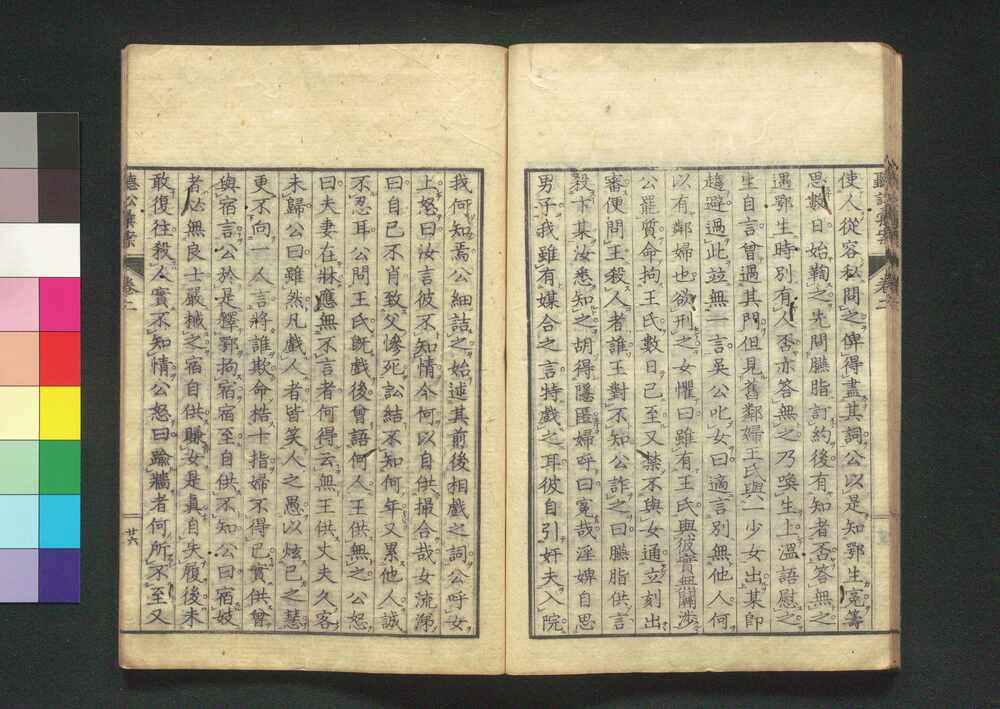 使人從容私問之俾得盡其詞公以是知鄂生寃籌
思數日始鞫之先問臙脂訂約後有知者否答無之
遇鄂生時別有人否亦答無之乃喚生上溫語慰之
生自言曾過其門但見舊鄰婦王氏與一少女出某即
趨避過此並無一言吳公叱女曰適言別無他人何
以有鄰婦也欲刑之女懼曰雖有王氏與彼實無關涉
公罷質命拘王氏數日已至又禁不與女通立刻出
審便問王殺人者誰王對不知公詐之曰臙脂供言
殺卞某汝悉知之胡得隱匿婦呼曰寃哉淫婢自思
男子我雖有媒合之言特戲之耳彼自引奸夫入院
我何知焉公細詰之始述其前後相戲之詞公呼女
上怒曰汝言彼不知情今何以自供撮合哉女流涕
曰自己不肖致父慘死訟結不知何年又累他人誠
不忍耳公問王氏既戲後曾語何人王供無之公怒
曰夫妻在牀應無不言者何得云無王供丈夫久客
未歸公曰雖然凡戲人者皆笑人之愚以炫己之慧
更不向一人言將誰欺命梏十指婦不得已實供曾
與宿言公於是釋鄂拘宿宿至自供不知公曰宿妓
者必無良士嚴械之宿自供賺女是真自失履後未
敢復往殺人實不知情公怒曰踰牆者何所不至又
卷二
廿六